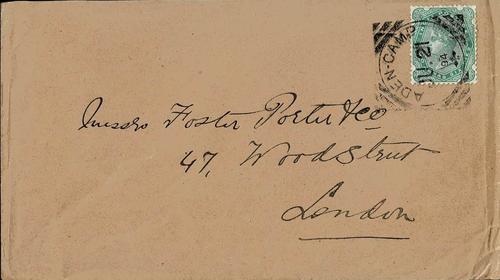 ADEN-CAMP
JU 21
94
Messrs Foster Porter & Co
47, Wood Street
London